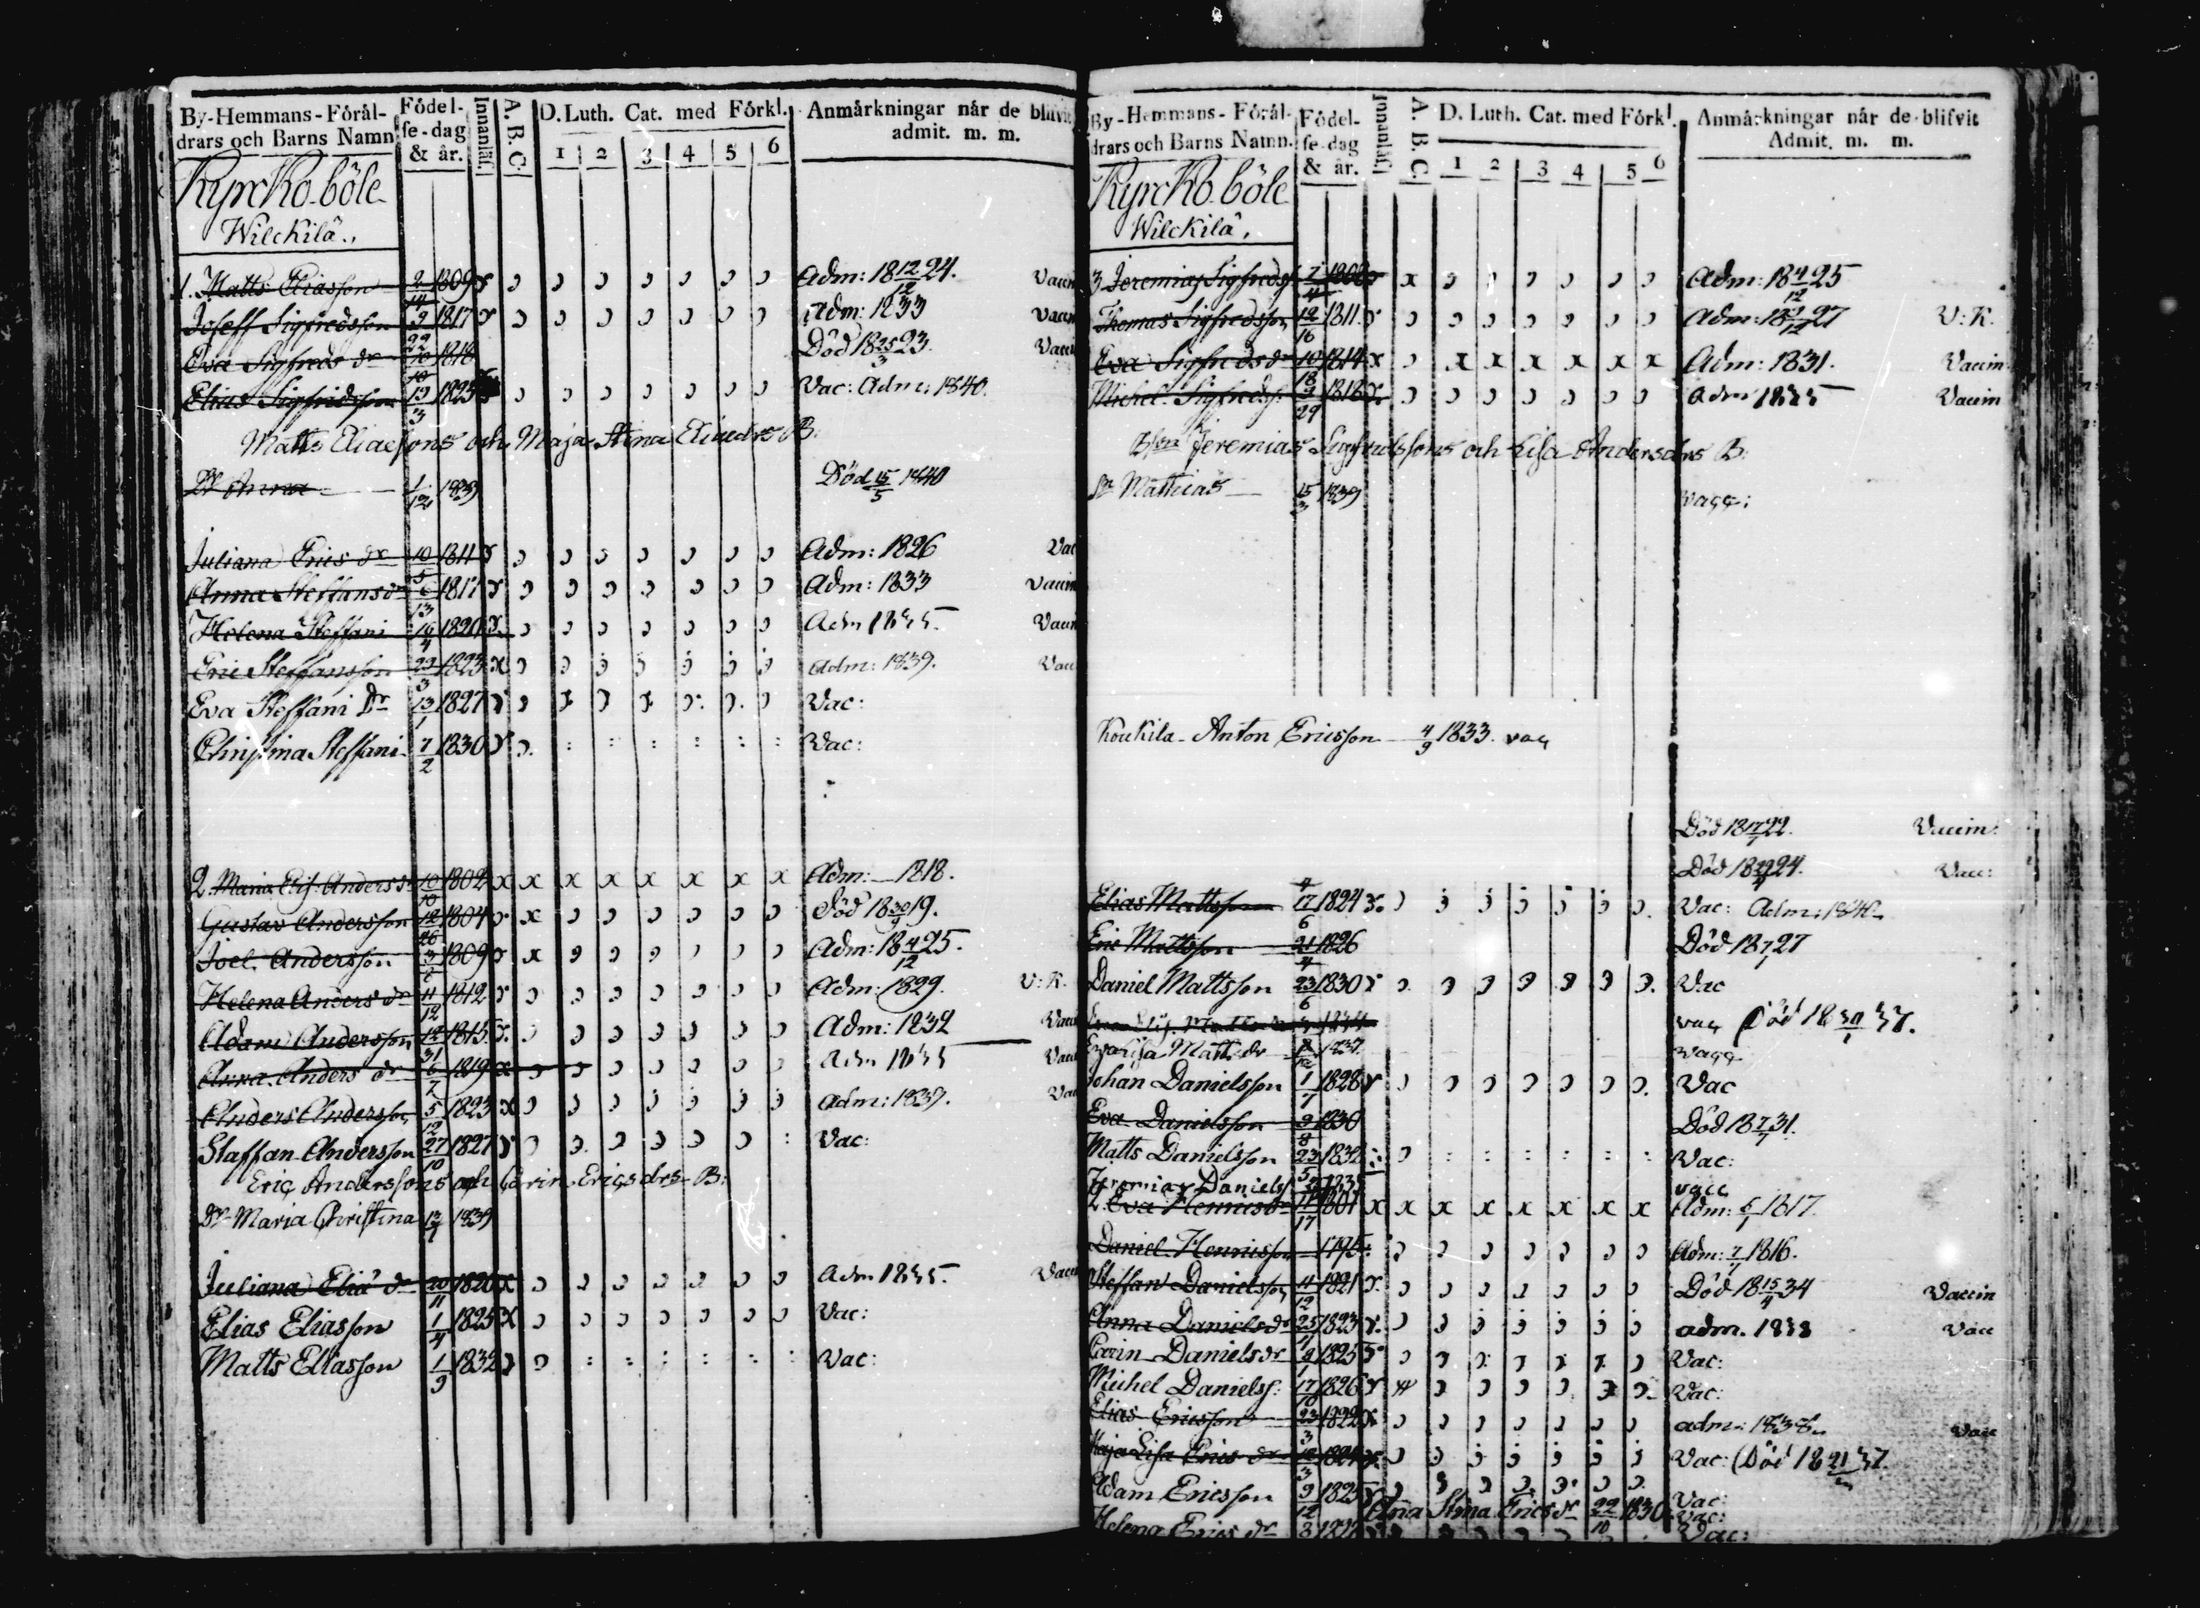 By-Hemmans-Förål-drars och Barns Namn Födel-se-dag & år. Innanläs. A. B. C. D. Luth. Cat. med Förkl. 1 2 3 4 5 6 Anmårkningar når de blifvit admit. m. m.
Kyrcko-böle
Wilckilä.
1. Matts Eliasson 2/14 1809 Adm: 18 12/12 24. Vaccin
Joseff Sigfredsson 9/22 1817 Adm: 1833 Vaccin
Eva Sigfreds dr 10/10 1818 Död 18 25/3 23. Vaccin
Elias Sigfridsson 13/3 1823 Vac: Adm: 1840.
Matts Eliassons och Maja Stina Eliædrs B.
Dr Anna 1/12 1839 Död 15/5 1840
Juliana Erics dr 10/5 1811 Adm: 1826 Vac
Anna Steffansdr 6/13 1817 Adm: 1833 Vaccin
Helena Steffani 16/4 1820 Adm 1835. Vaccin
Eric Steffansson 23/3 1823 Adm: 1839. Vacc
Eva Steffani Dr 13/1 1827 Vac:
Christina Steffani 7/2 1830 Vac:
2. Maria Elis. Anders dr 10/10 1802 x x x x x x x x Adm: 1818.
Gustav Andersson 12/26 1804 x Död 18 30/ 19.
Joel Andersson 3/ 1809 x Adm: 18 4/12 25.
Helena Anders dr 11/12 1812 Adm: 1829. V: K.
Adam Andersson 12/31 1815 Adm: 1832 Vacc
Anna Anders dr 6/7 1819 x Adm 1835 Vacc
Anders Andersson 5/12 1823 x Adm: 1839. Vac
Staffan Andersson 27/10 1827 Vac:
Eric Anderssons och Carin Ericsdrs B:
Dr Maria Christina 1839
Juliana Eliä dr 20/11 1820 x Adm 1835. Vacc
Elias Eliasson 1/4 1825 x Vac:
Matts Eliasson 1/9 1832 Vac:
By-Hemmans-Förål-drars och Barns Namn. Födel-se-dag & år. Innanläs. A. B. C. D. Luth. Cat. med Förkl. 1 2 3 4 5 6 Anmårkningar når de blifvit Admit. m. m.
Kyrcko-böle
Wilckilä.
3. Jeremias Sigfreds. 7/4 1808 x Adm: 18 4/12 25
Thomas Sigfredsson 12/16 1811 Adm: 18 27 V: K.
Eva Sigfreds dr 10/18 1814 x x x x x x x Adm: 1831. Vaccin
Michel Sigfreds. 9/29 1818 Adm 1835 Vaccin
Jeremias Sigfridssons och Lisa Andersdrs B:
Sn Mathias 15/3 1839 vacc:
Koukila Anton Ericsson 4/9 1833. vac
Död 18 17/ 22. Vaccin:
Död 18 24. Vacc:
Elias Mattsson 17/6 1824 Vac: Adm: 1840
Eric Mattsson 21/4 1826 Död 18 7/1 27
Daniel Mattsson 23/6 1830 Vac
1834 vac Död 18 30/1 37.
Eva Lisa Matts dr 1837. vacc
Johan Danielsson 1/7 1828 Vac
Eva Danielsson 9/8 1830 Död 18 7/ 31.
Matts Danielsson 23/5 1832 Vac:
Jeremias Daniels. 1835 vacc
2. Eva Henricsdr 11/17 1801 x x x x x x x x Adm: 6/1 1817.
Daniel Henricsson 1795 Adm: 7/1 1816.
Steffan Danielsson 4/12 1821 Död 18 15/4 34 Vaccin
Anna Danielsdr 25/11 1823 adm. 1838 Vacc
Carin Daniels dr 1825 Vac:
Michel Daniels. 17/10 1826 Vac:
Elias Ericsson 23/3 1822 adm: 1838. Vacc
Maja Lisa Erics dr 12/3 1824 Vac: Död 18 21/ 37.
Adam Ericsson 9/12 1825 Vac:
Ana Stina Erics dr 22/10 1830 Vac:
Helena Erics dr Vac: